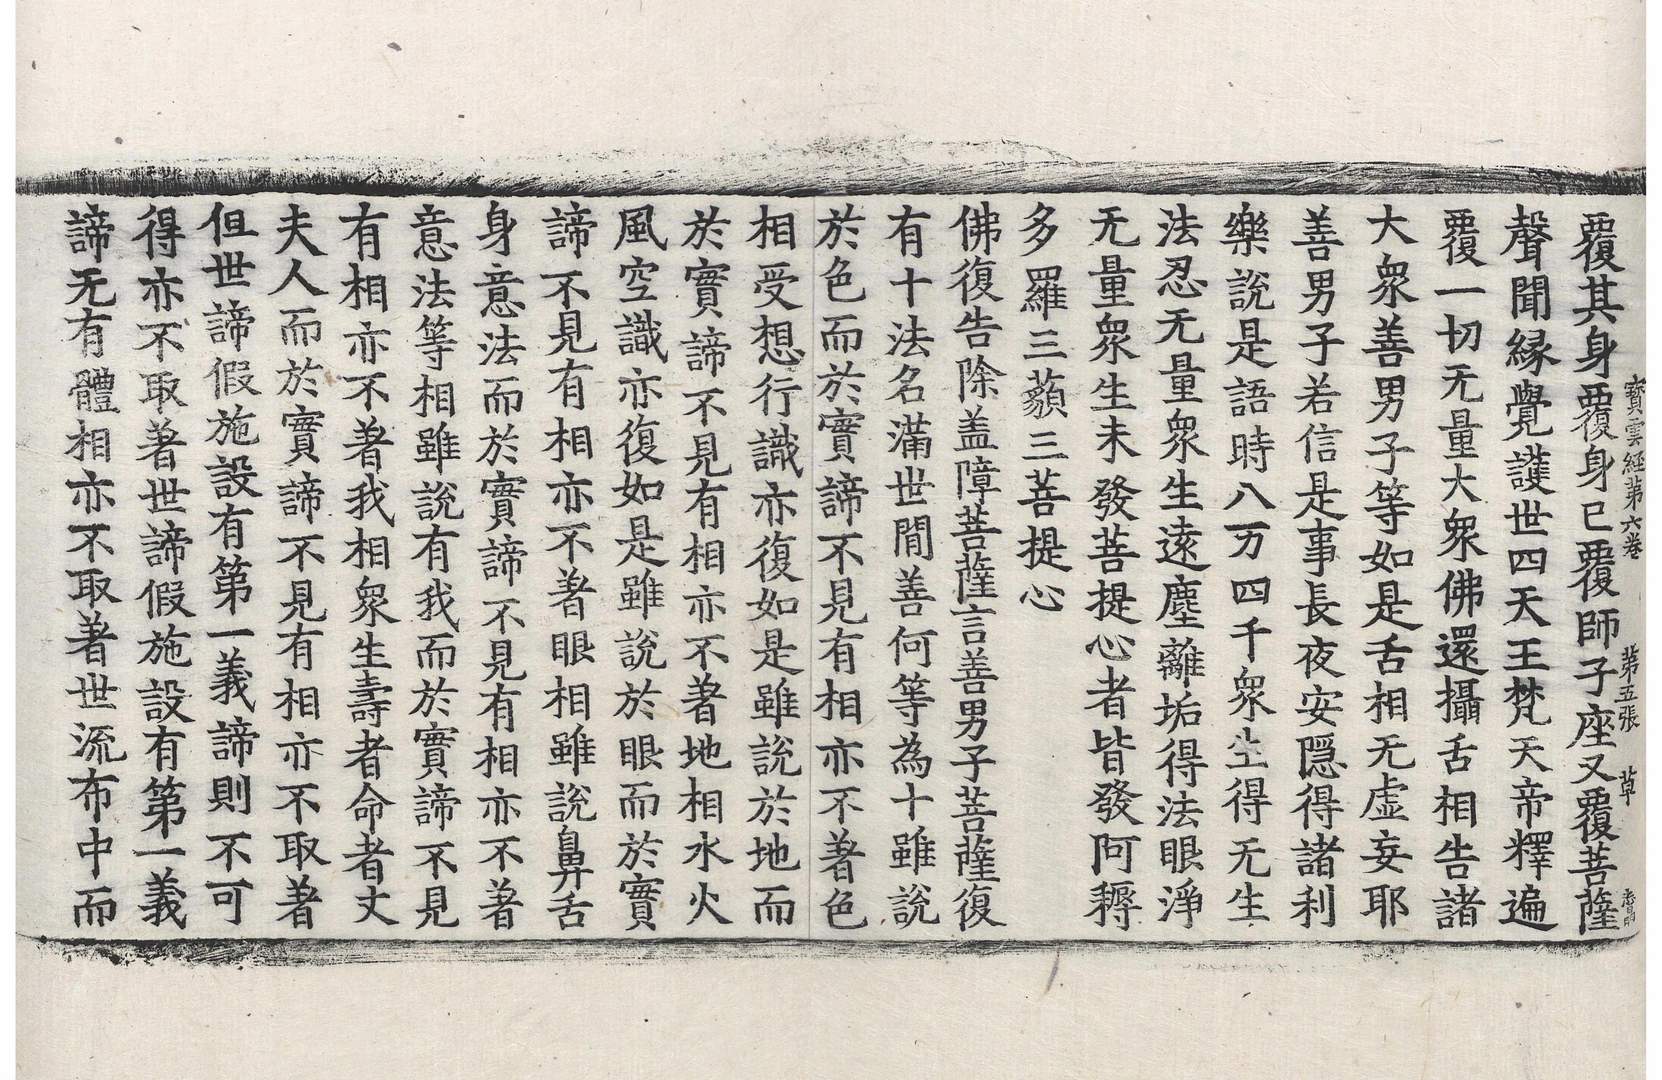 寶雲經第六卷 第五張 草
覆其身覆身已覆師子座又覆菩薩
聲聞緣覺護世四天王梵天帝釋遍
覆一切无量大衆佛還攝舌相告諸
大衆善男子等如是舌相无虛妄耶
善男子若信是事長夜安隱得諸利
樂說是語時八万四千衆生得无生
法忍无量衆生遠塵離垢得法眼淨
无量衆生未發菩提心者皆發阿耨
多羅三藐三菩提心
佛復告除盖障菩薩言善男子菩薩復
有十法名滿世閒善何等為十雖說
於色而於實諦不見有相亦不著色
相受想行識亦復如是雖說於地而
於實諦不見有相亦不著地相水火
風空識亦復如是雖說於眼而於實
諦不見有相亦不著眼相雖說鼻舌
身意法而於實諦不見有相亦不著
意法等相雖說有我而於實諦不見
有相亦不著我相衆生壽者命者丈
夫人而於實諦不見有相亦不取著
但世諦假施設有第一義諦則不可
得亦不取著世諦假施設有第一義
諦无有體相亦不取著世流布中而